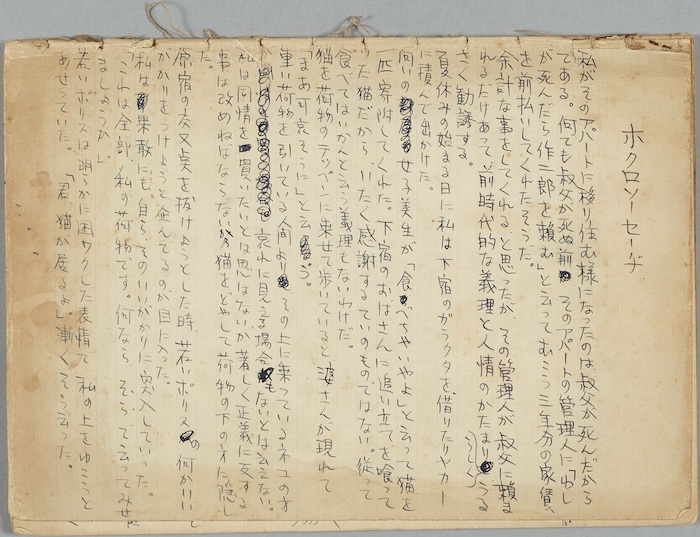 ホクロソーセーヂ
私がそのアパートに移り住む様になったのは叔父が死んだから
である。何でも叔父が死ぬ前 そのアパートの管理人に「わし
が死んだら作二郎を頼む」と云ってむこう三年分の家賃
を前払いしてくれたそうだ。
余計な事をしてくれると思ったが その管理人が叔父に頼ま
れるだけあって、前時代的な義理と人情のかたまり うる
さく勧誘する。
夏休みの始まる日に私は下宿のガラクタを借りたリヤカー
に積んで出かけた。
向いの 女子美生が「食べちゃいやよ」と云って猫を
一匹寄附してくれた。下宿のおばさんに追い立てを喰って
た猫だから、いたく感謝するていのものではない。従って
食べてはいかんと云う義理もないわけだ。
猫を荷物のテッペンに乗せて歩いていると 婆さんが現れて
「まあ可哀そうに」と云う。
重い荷物を引いている人間より その上に乗っているネコの方
が 哀れに見える場合 もないとは云えない。
私は同情を 買いたいとは思はないが 著しく正義に反する
事は改めねばならない 猫をどやして荷物の下の方に隠し
た。
原宿の交叉点を抜けようとした時 若いポリス 何かいい
がかりをつけようと企んでるのが目に入った。
私は 果敢にも 自ら そのいいがかりに突入していった。
「これは全部 私の荷物です。何なら そらで云ってみせ
ましょうか」
若いポリスは明らかに困ワクした表情で 私の上をゆこうと
あせっていた。「君 猫が居るよ」漸く そう云った。